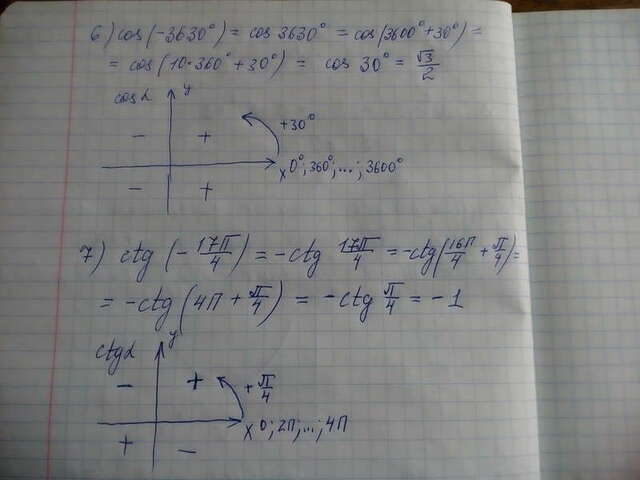 6) cos(-3630°) = cos 3630° = cos(3600° + 30°) =
= cos(10·360° + 30°) = cos 30° = √3/2
cos α
y
- +
+30°
x 0°; 360°; ...; 3600°
- +
7) ctg (- 17π/4) = -ctg 17π/4 = -ctg(16π/4 + π/4) =
= -ctg (4π + π/4) = -ctg π/4 = -1
ctg α
y
- +
+ π/4
x 0; 2π; ...; 4π
+ -